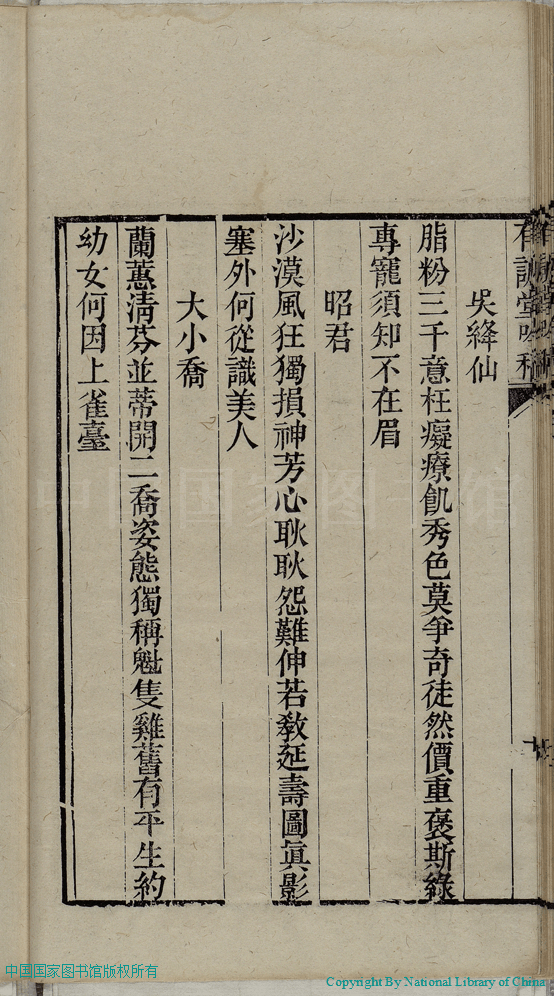 吳絳仙
脂粉三千意枉癡療飢秀色莫爭奇徒然價重褒斯綠
專寵須知不在眉
昭君
沙漠風狂獨損神芳心耿耿怨難伸若教延壽圖真影
塞外何從識美人
大小喬
蘭蕙清芬並蒂開二喬姿態獨稱魁隻雞舊有平生約
幼女何因上雀臺
中国国家图书馆
中国国家图书馆版权所有
Copyright By National Library of China